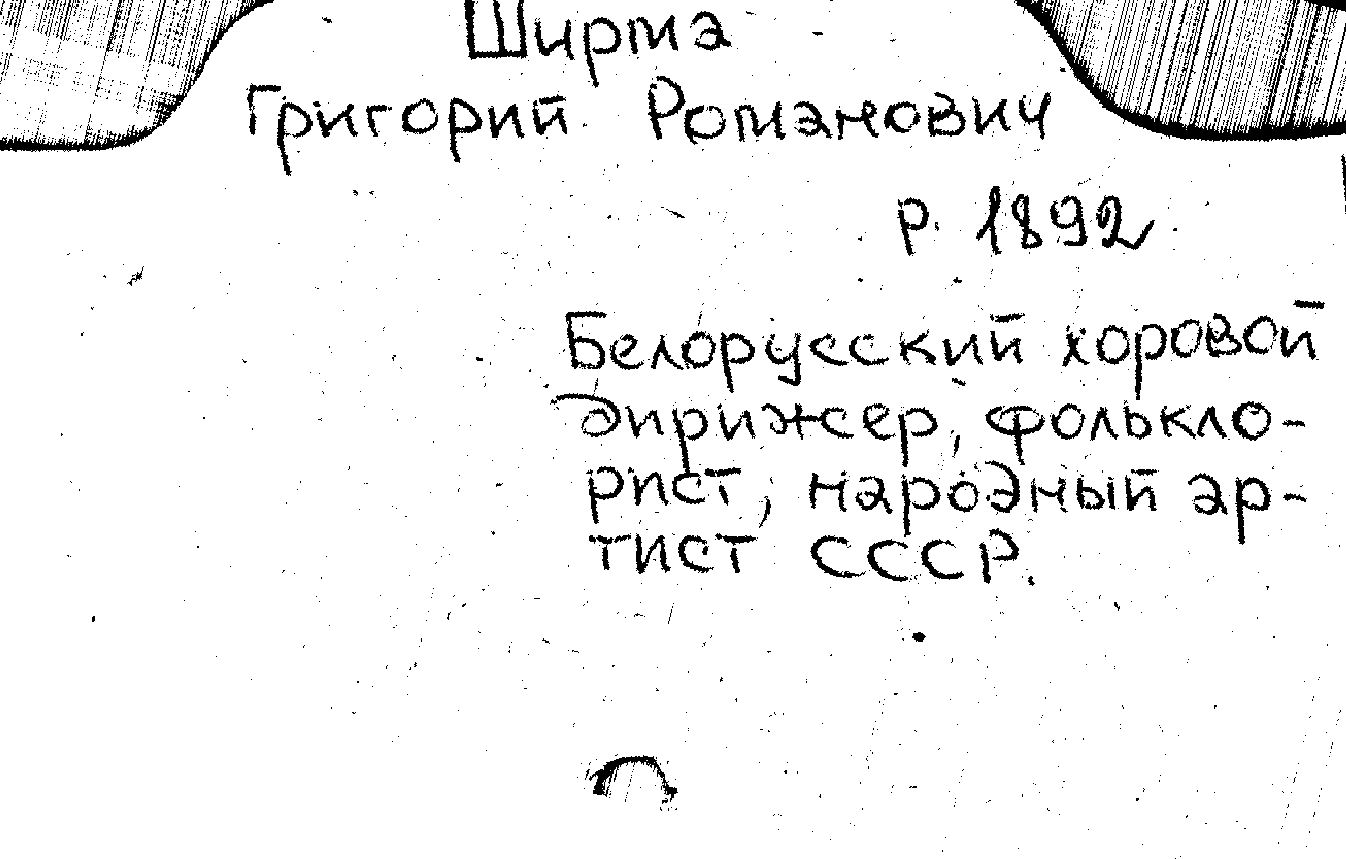 Ширма
Григорий Романович
р. 1892
Белорусский хоровой
дирижер, фолькло-
рист, народный ар-
тист СССР.